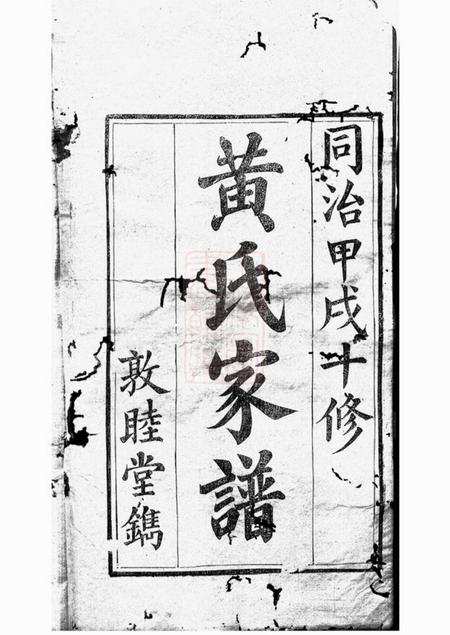 同治甲戌十修
黄氏家譜
敦睦堂鐫